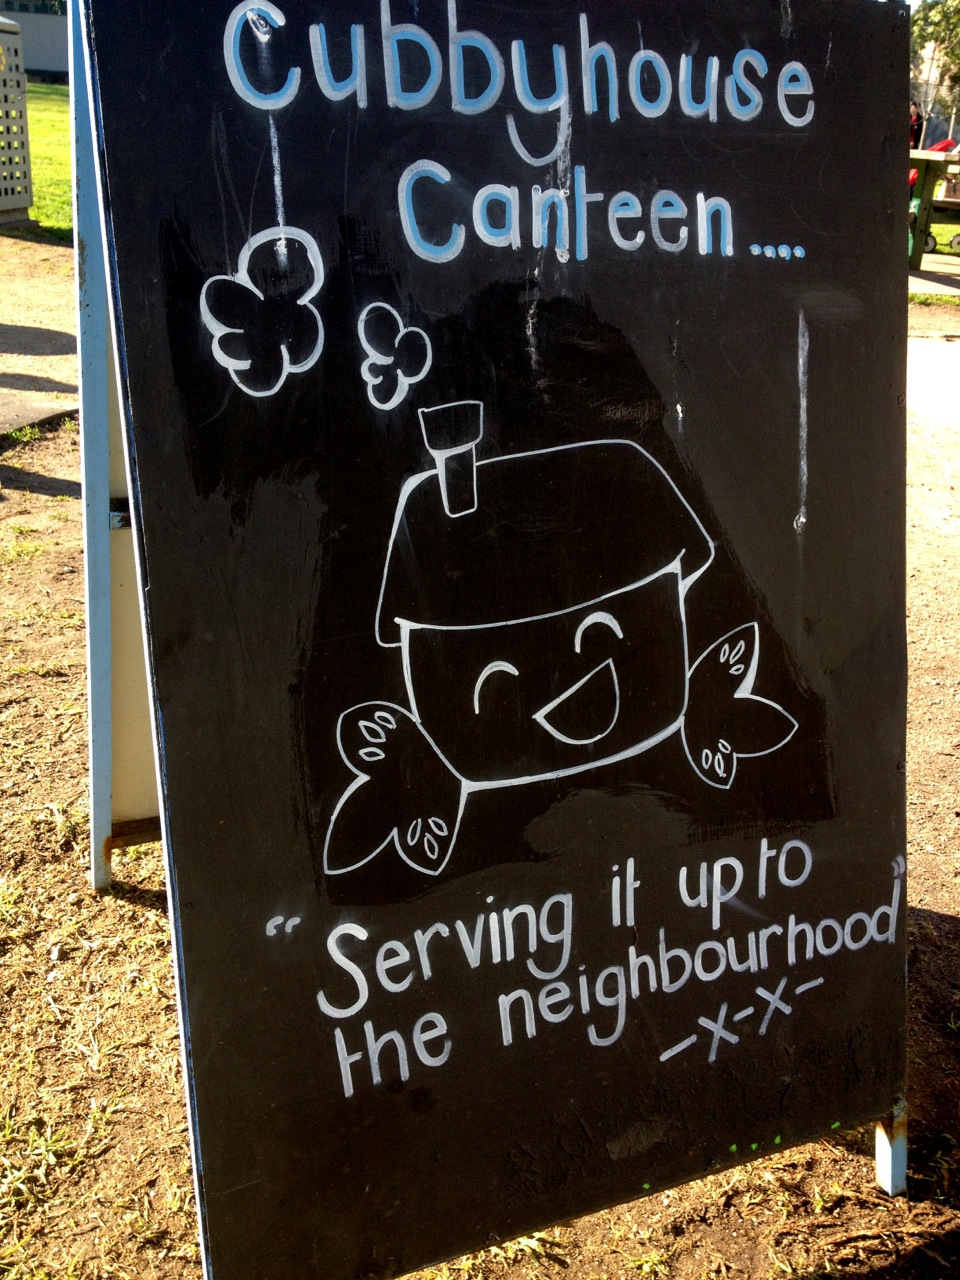 Cubbyhouse
Canteen....
"Serving it up to
the neighbourhood"
-x-x-